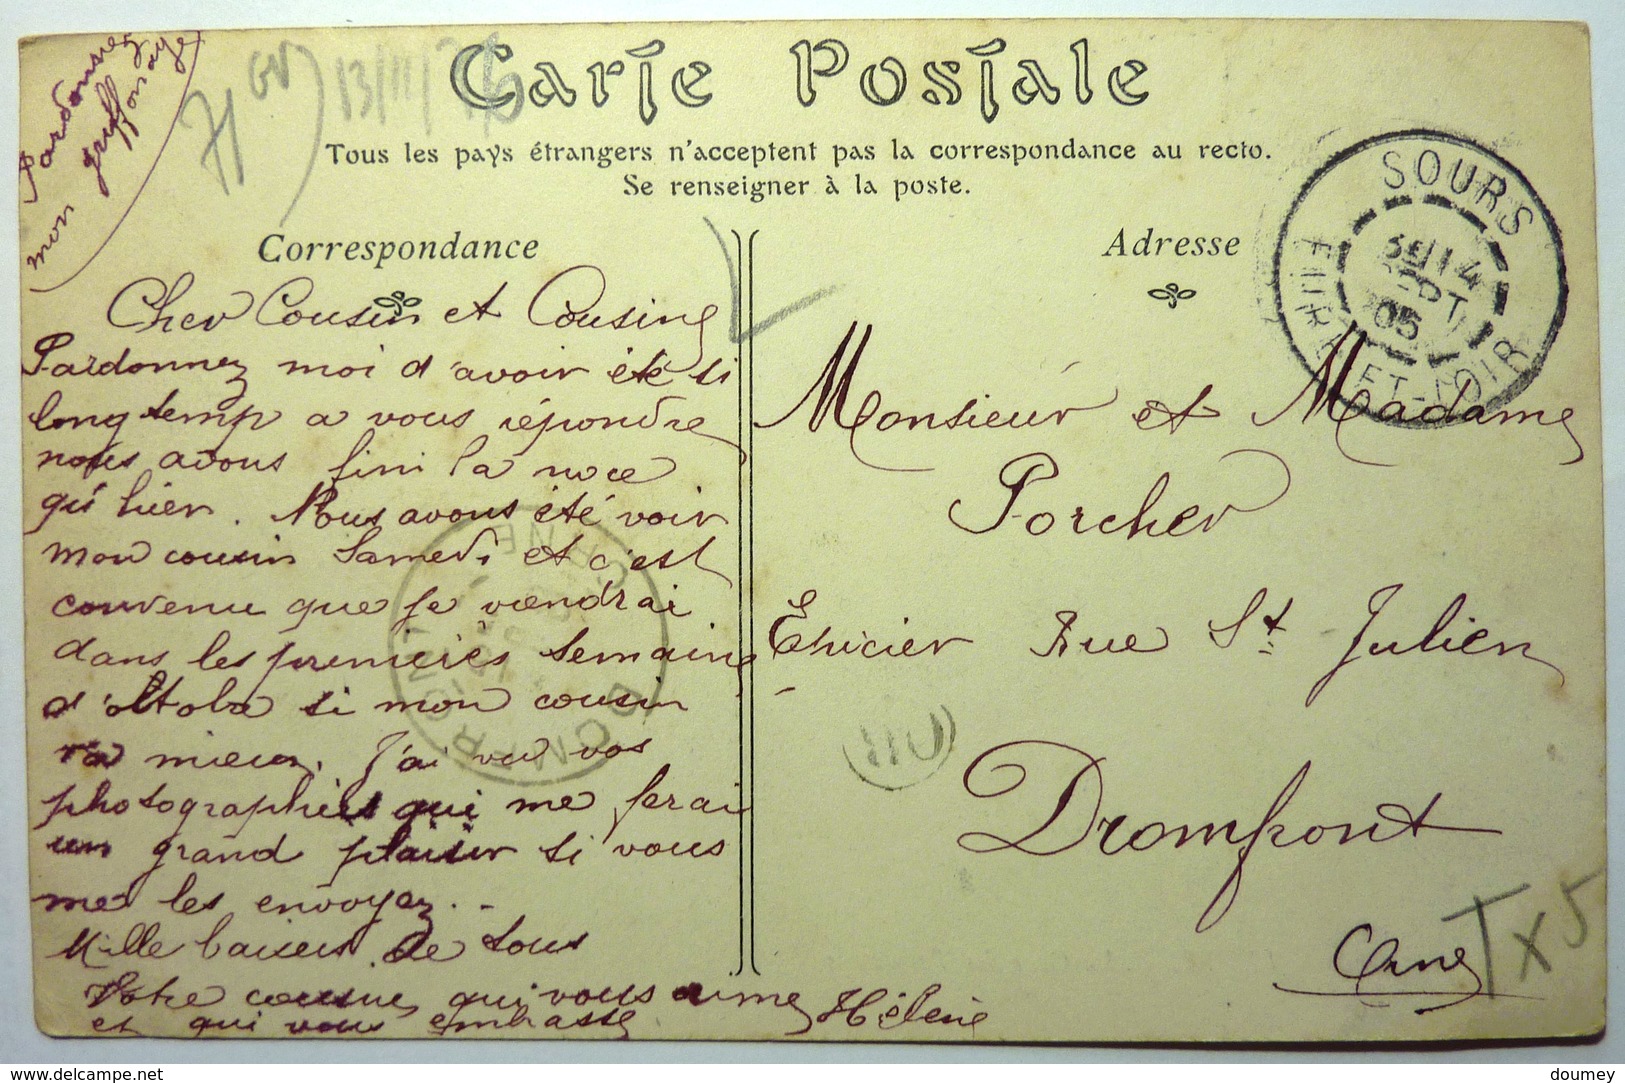 Pardonnez
mon griffonage
Carte Postale
Tous les pays étrangers n'acceptent pas la correspondance au recto.
Se renseigner à la poste.
Correspondance
Cher Cousin et Cousine
Pardonnez moi d'avoir été si
longtemp a vous répondre
nous avons fini la noce
qu'hier. Nous avons été voir
mon cousin Samedi et c'est
convenu que je viendrai
dans les premières semaine
d'octobre si mon cousin
va mieux. J'ai vu vos
photographies qui me ferai
un grand plaisir si vous
me les envoyez..
Mille baisers de tous
Votre cousine qui vous aime Hélène
et qui vous embrasse
Adresse
Monsieur et Madame
Porcher
Epicier Rue St Julien
Dromfront
Orne
SOURS
14
SEPT
05
EURE-ET-LOIR
T x 5
www.delcampe.net
doumey